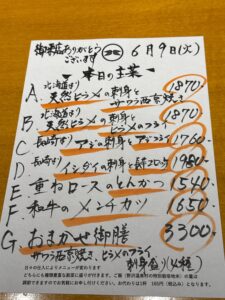 御来店ありがとう
ございます
6月9日(火)
本日の主菜
北海道より
A. 天然ヒラメの刺身と 1870.
サワラ西京焼き
北海道より
B. 天然ヒラメの刺身と 1870
ヒラメのフライ
C 長崎より アジの刺身とアジフライ 1760-
D. 長崎より イシダイの刺身と 1980-
E. 重ねロースのとんかつ 1540
F. 和牛のメンチカツ 1650
G. おまかせ御膳 3300
サワラ西京焼き、ヒラメのフライ
刺身盛り
日々の仕入によりメニューが変わります